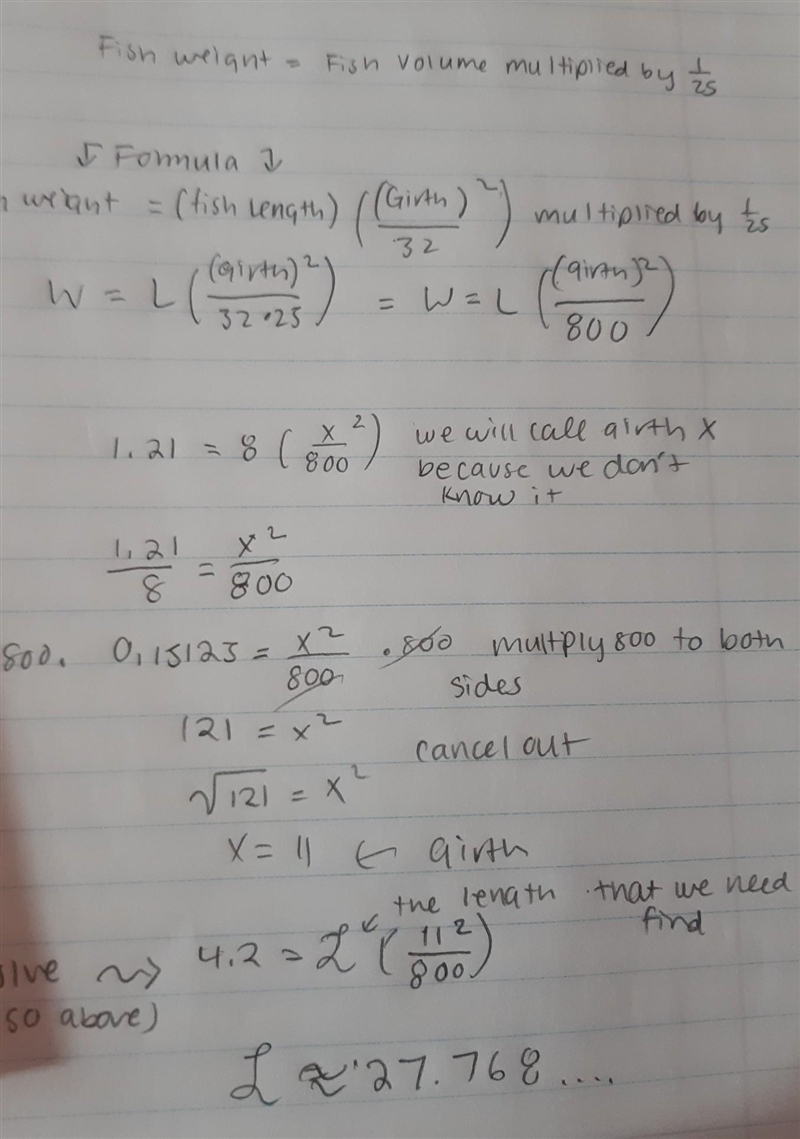 Fish weight = Fish volume multiplied by 1/25
↓ Formula ↓
weight = (fish length) ((Girth)²/32) multiplied by 1/25
W = L ((girth)²/32·25) = W = L ((girth)²/800)
1.21 = 8 (x²/800) we will call girth x
because we don't
know it
1.21/8 = x²/800
800. 0.15125 = x²/800 .800 multply 800 to both
sides
121 = x²
cancel out
√121 = x²
x = 11 ← girth
the length that we need
find
4.2 = L (11²/800)
so above)
L ≈ 27.768....